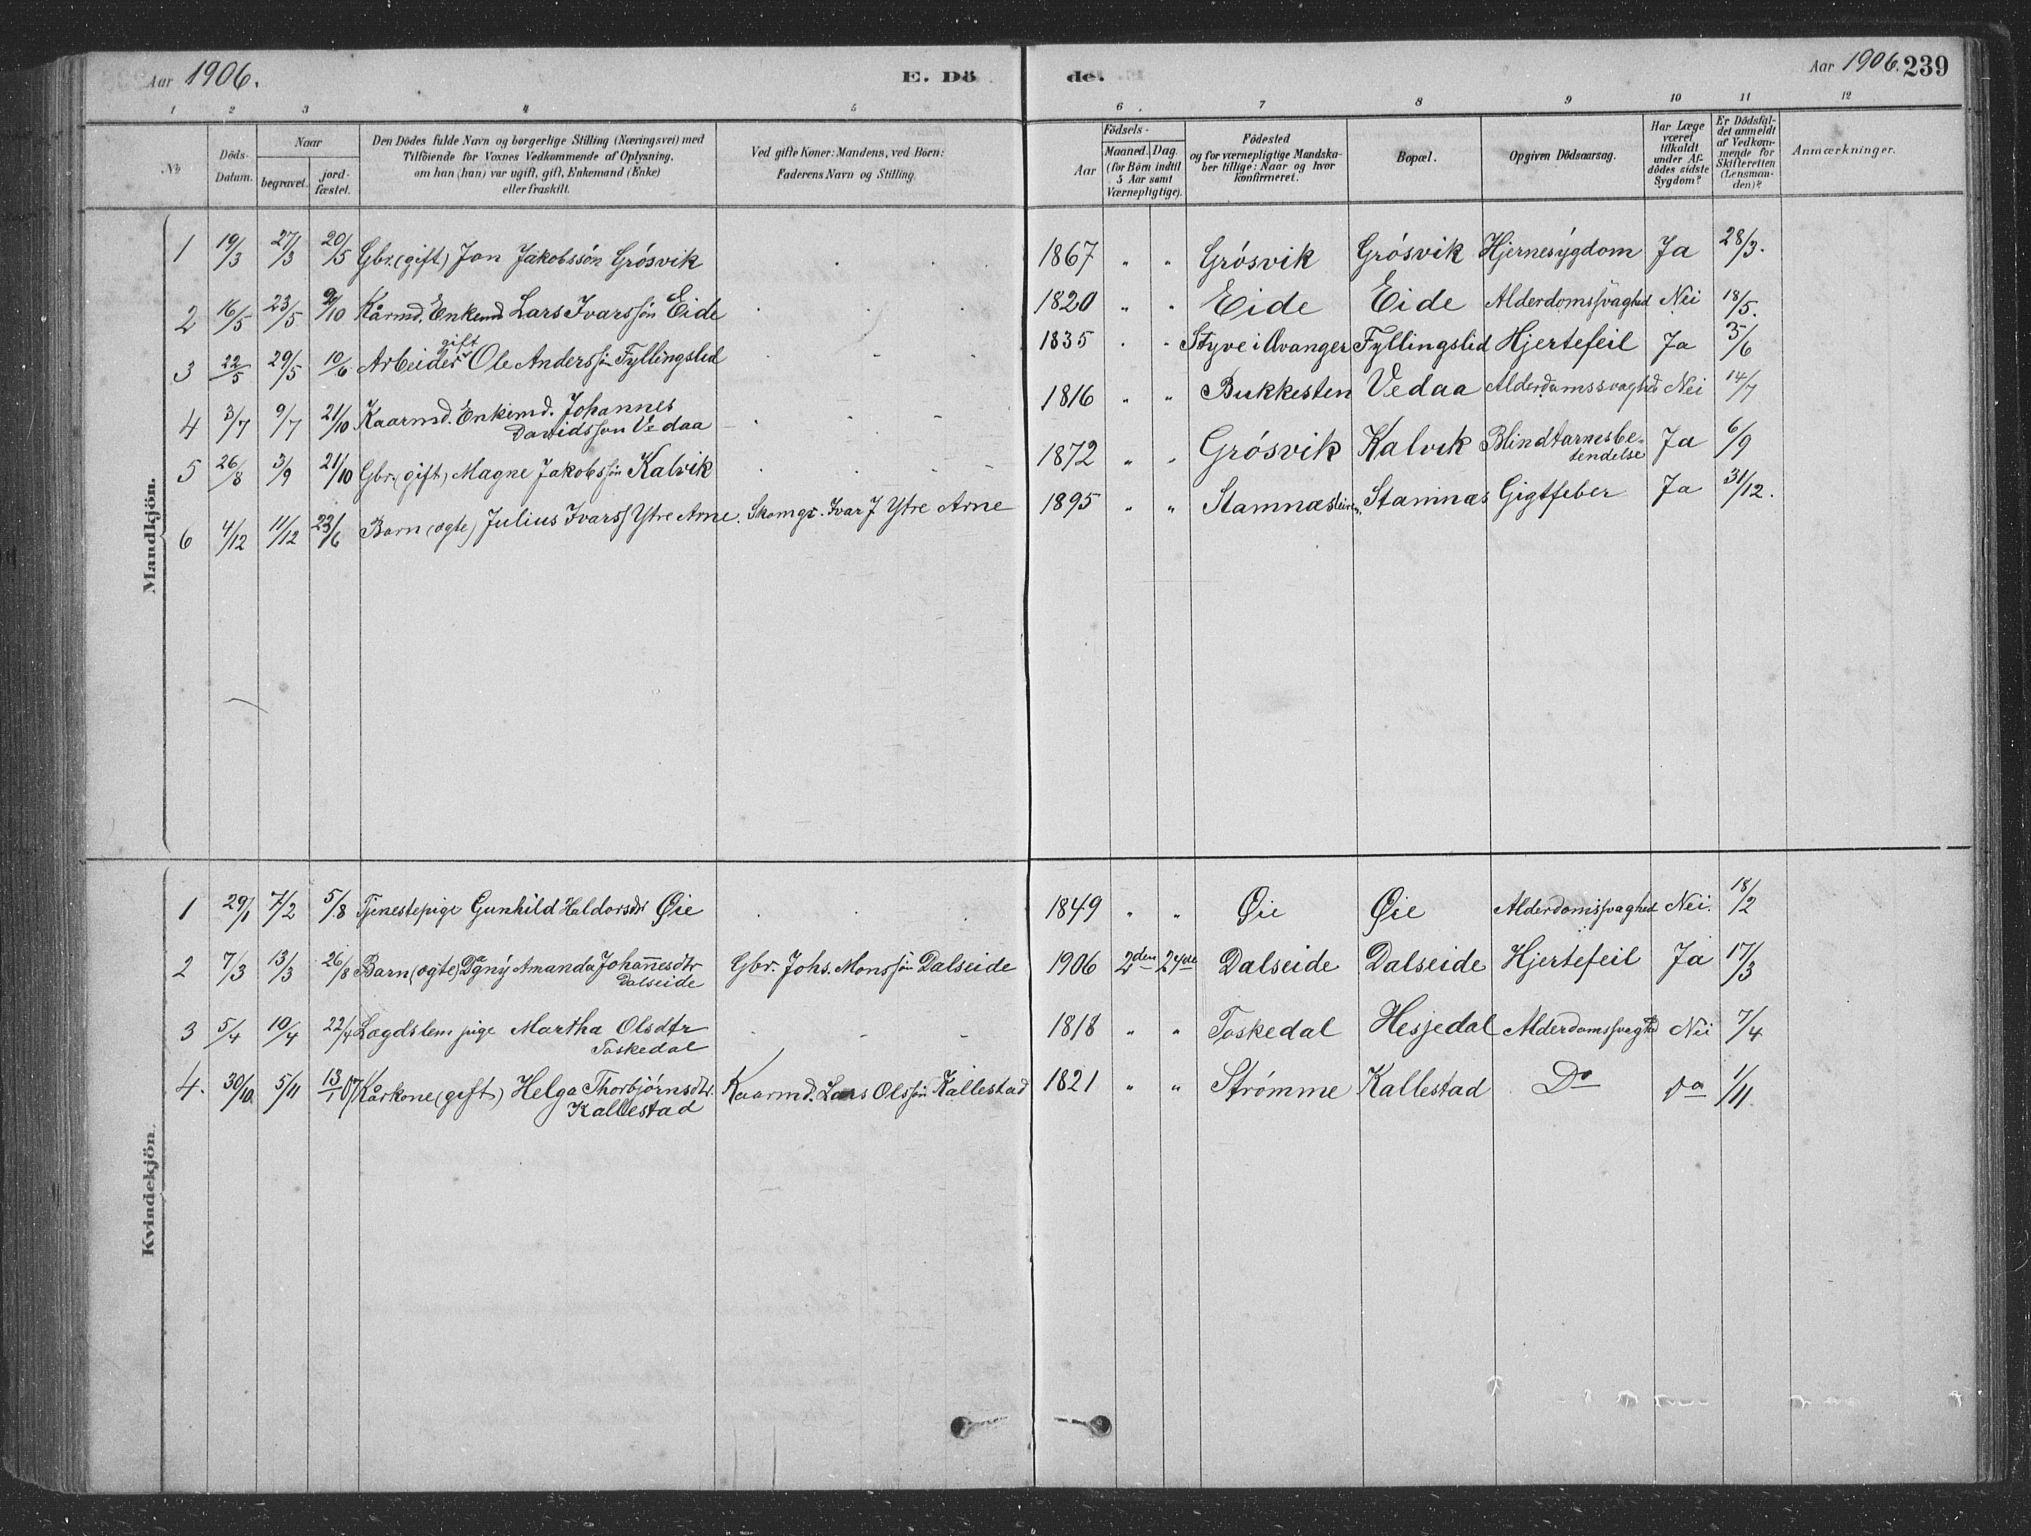 Aar 1906. E. Dö de. Aar 1906. 239
1 2 3 4 5 6 7 8 9 10 11 12
No
Döds-Datum.
Naar
begravet.
jord-fæstet.
Den Dödes fulde Navn og borgerlige Stilling (Næringsvei) med
Tilföiende for Voxnes Vedkommende af Oplysning,
om han (hun) var ugift, gift, Enkemand (Enke)
eller fraskilt.
Ved gifte Koner: Mandens, ved Börn:
Faderens Navn og Stilling.
Födsels-
Aar
Maaned. Dag.
(for Börn indtil
5 Aar samt
Værnepligtige).
Födested
og for værnepligtige Mandska-
ber tillige: Naar og hvor
konfirmeret.
Bopæl.
Opgiven Dödsaarsag.
Har Læge
været
tilkaldt
under Af-
dödes sidste
Sygdom?
Er Dödsfal-
det anmeldt
af Vedkom-
mende for
Skifteretten
(Lensman-
den)?
Anmærkninger.
Mandkjön.
1 19/3 27/3 20/5 Gbr. (gift) Jon Jakobssön Grósvik 1867 " " Grósvik Grósvik Hjernesygdom Ja 28/3.
2 16/5 23/5 9/10 Kårmd. Enkemd Lars Ivarssön Eide 1820 " " Eide Eide Alderdomssvaghed Nei 18/5.
3 22/5 29/5 10/6 Arbeider gift Ole Anderssön Fyllingslid 1835 " " Styve i Qvanger Fyllingslid Hjertefeil Ja 5/6
4 3/7 9/7 21/10 Kaarmd. Enkemd. Johannes 1816 " " Bukkesten Vedaa Alderdomssvaghed Nei 14/7
Davidsson Vedaa
5 26/8 3/9 21/10 Gbr. (gift) Magne Jakobssön Kalvik 1872 " " Grósvik Kalvik Blindtarmsbe- Ja 6/9
tendelse
6 4/12 11/12 23/6 Barn (ægte) Julius Ivarss Ytre Arne. Skomgr. Ivar J Ytre Arne 1895 " " Stamnæs Stamnæs Gigtfeber Ja 31/12.
Kvindekjön.
1 29/1 7/2 5/8 Tjenestepige Gunhild Haldorsdtr Øie 1849 " " Øie Øie Alderdomssvaghed Nei. 18/2
2 7/3 13/3 26/8 Barn (ægte) Dagny Amanda Johannesdtr Gbr. Johs. Monssön Dalseide 1906 2den 24de Dalseide Dalseide Hjertefeil Ja 17/3
Dalseide
3 5/4 10/4 22/4 Lægdslem pige Martha Olsdtr 1818 " " Toskedal Hesjedal Alderdomssvaghed Nei 7/4
Toskedal
4. 30/10 5/11 13/1 07 Kårkone (gift) Helga Thorbjørnsdtr. Kaarmd. Lars Olssön Kallestad 1821 " " Strømme Kallestad Do do 1/11
Kallestad